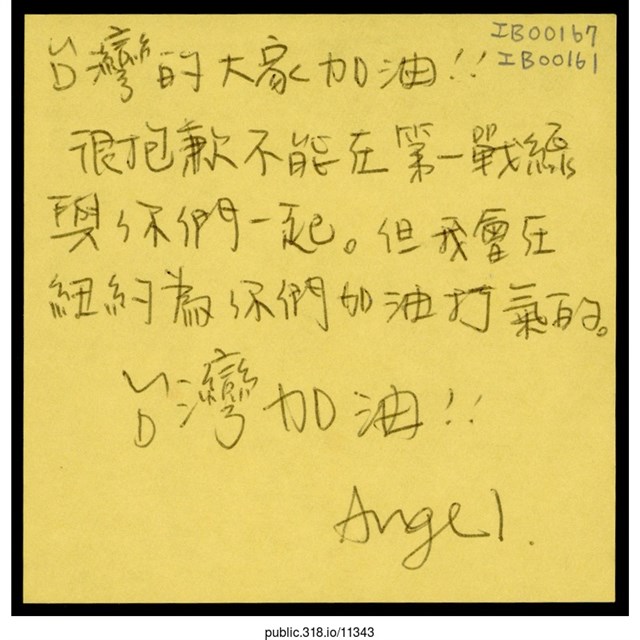 IB00167
IB00161
台灣的大家加油!!
很抱歉不能在第一戰線
與你們一起。但我會在
紐約為你們加油打氣的。
台灣加油!!
Angel.
public.318.io/11343